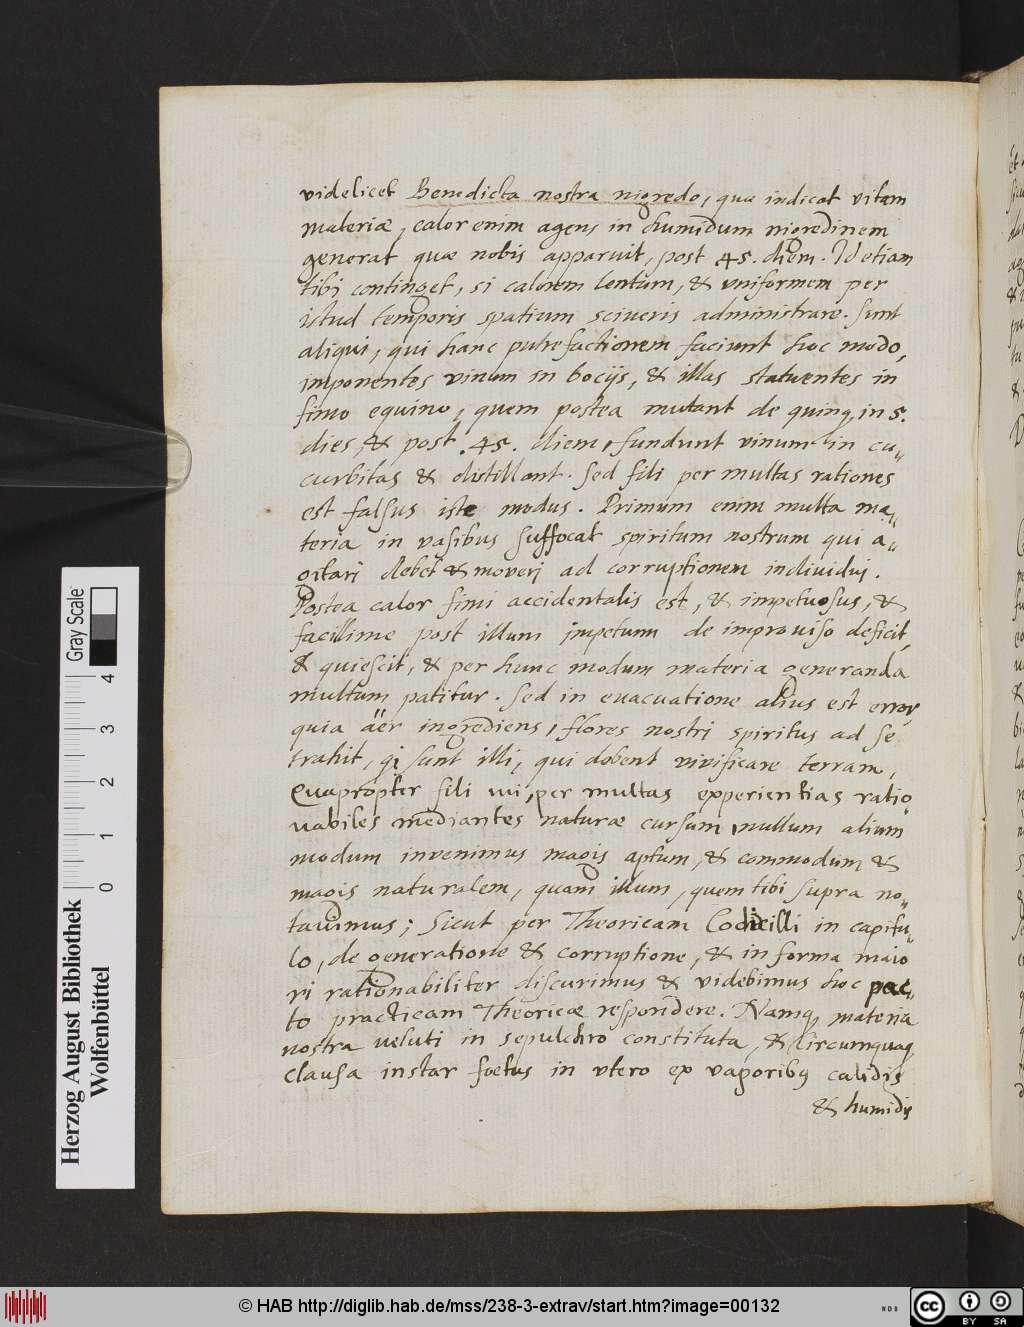 videlicet Benedicta nostra nigredo, quæ indicat vitam
materiæ, calor enim agens in humidum nigredinem
generat quæ nobis apparuit, post 45. diem. Id etiam
tibi continget, si calorem lentum, & vniformem per
istud temporis spatium sciueris administrare. Sunt
aliqui, qui hanc putrefactionem faciunt hoc modo,
imponentes vinum in bocijs, & illas statuentes in
fimo equino, quem postea mutant de quinq, in 5.
dies, & post .45. diem, fundunt vinum in cu„
curbitas & distillant. Sed fili per multas rationes
est falsus iste modus. Primum enim multa ma„
teria in vasibus suffocat spiritum nostrum qui a„
gitari debet & moveri ad corruptionem individui.
Postea calor fimi accidentalis est, & impetuosus, &
facillime post illum impetum de improviso deficit,
& quiescit, & per hunc modum materia generanda
multum patitur. Sed in evacuatione alius est error
quia äer ingrediens, flores nostri spiritus ad se
trahit, qi sunt illi, qui debent vivificare terram,
Quapropter fili mi, per multas experientias ratio„
nabiles mediantes naturæ cursum, nullum alium
modum invenimus magis aptum, & commodum, &
magis naturalem, quam illum, quem tibi supra no„
tavimus; Sicut per Theoricam Codicilli in capitu„
lo, de generatione & corruptione, & in forma maio
ri rationabiliter discurimus & videbimus hoc pac„
to practicam Theoricæ respondere. Namq, materia
nostra veluti in sepulchro constituta, & circumquaq,
clausa instar foetus in vtero ex vaporibq calidis
& humidis
Herzog August Bibliothek
Wolfenbüttel
0 1 2 3 4
Gray Scale
© HAB http://diglib.hab.de/mss/238-3-extrav/start.htm?image=00132
cc BY SA